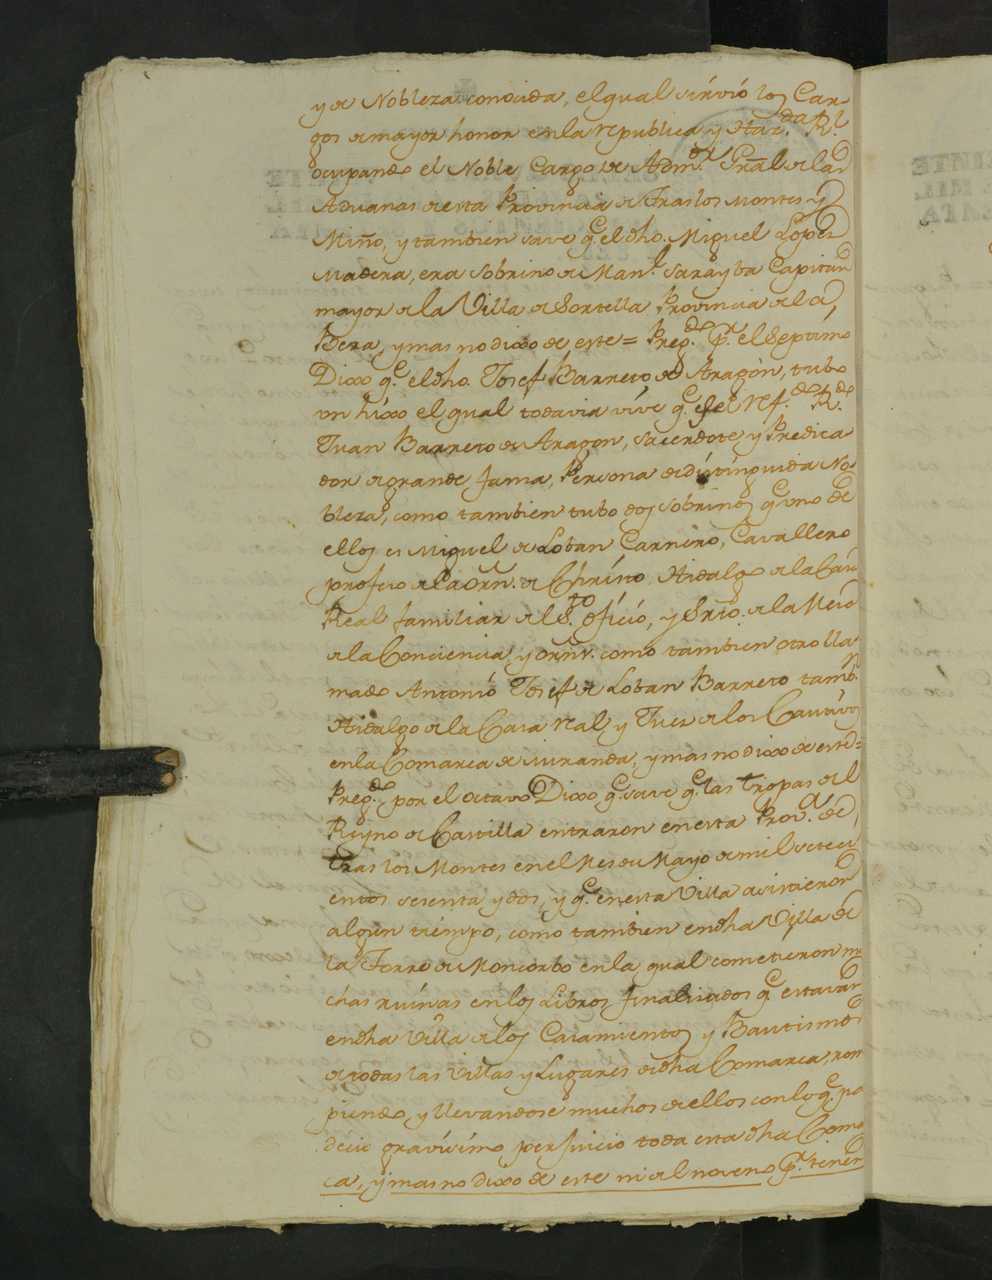 y de Nobleza conocida, el qual sirvió los Car-
gos de mayor honor en la republica y Haz.da R.l
ocupando el Noble Cargo de Adm.or Gral de las
Aduanas de esta Provincia de Tras los Montes y
Miño, y tambien save q.e el dho. Miguel Lopez
Madera, era sobrino de Man.l Sarayba Capitan
mayor de la Villa de Sortella Provincia de la
Bera, y mas no dixo de este = Preg.do p.r el Septimo
Dixo q.e el dho. Josef Barreto de Aragón, tubo
un hixo el qual todavia vive q.e es el Ref.do R.do
Juan Barreto de Aragon, sacerdote y Predica
dor de grande fama, Persona de distinguida No-
bleza, como tambien tubo dos sobrinos q.e uno de
ellos es Miguel de Loban Carneiro, Cavallero
profeso de la Orn. de Christo, Hidalgo de la Casa
Real familiar del S.to oficio, y Srio. de la Mesa
de la Conciencia, y orns. como tambien otro lla
mado Antonio Josef de Loban Barreto tamb.n
Hidalgo de la Casa Real y Juez de los Cautivos
en la Comarca de Miranda, y mas no dixo de este =
Preg.do por el octavo Dixo q.e save q.e las tropas del
Reyno de Castilla entraron en esta Prov.a de
tras los Montes en el Mes de Mayo de mil seteci
entos sesenta y dos, y q.e en esta Villa asistieron
algun tiempo, como tambien en dha Villa de
la Torre de Moncorbo en la qual cometieron mu
chas ruinas en los Libros finalizados q.e estavan
en dha Villa de los Casamientos y Bautismos
de todas las Villas y Lugares de dha Comarca, rom
piendo, y llevandose muchos de ellos con lo q.e pa
decie gravisimo perjuicio toda esta dha Comar
ca, y mas no dixo de este ni al noveno p.r tener